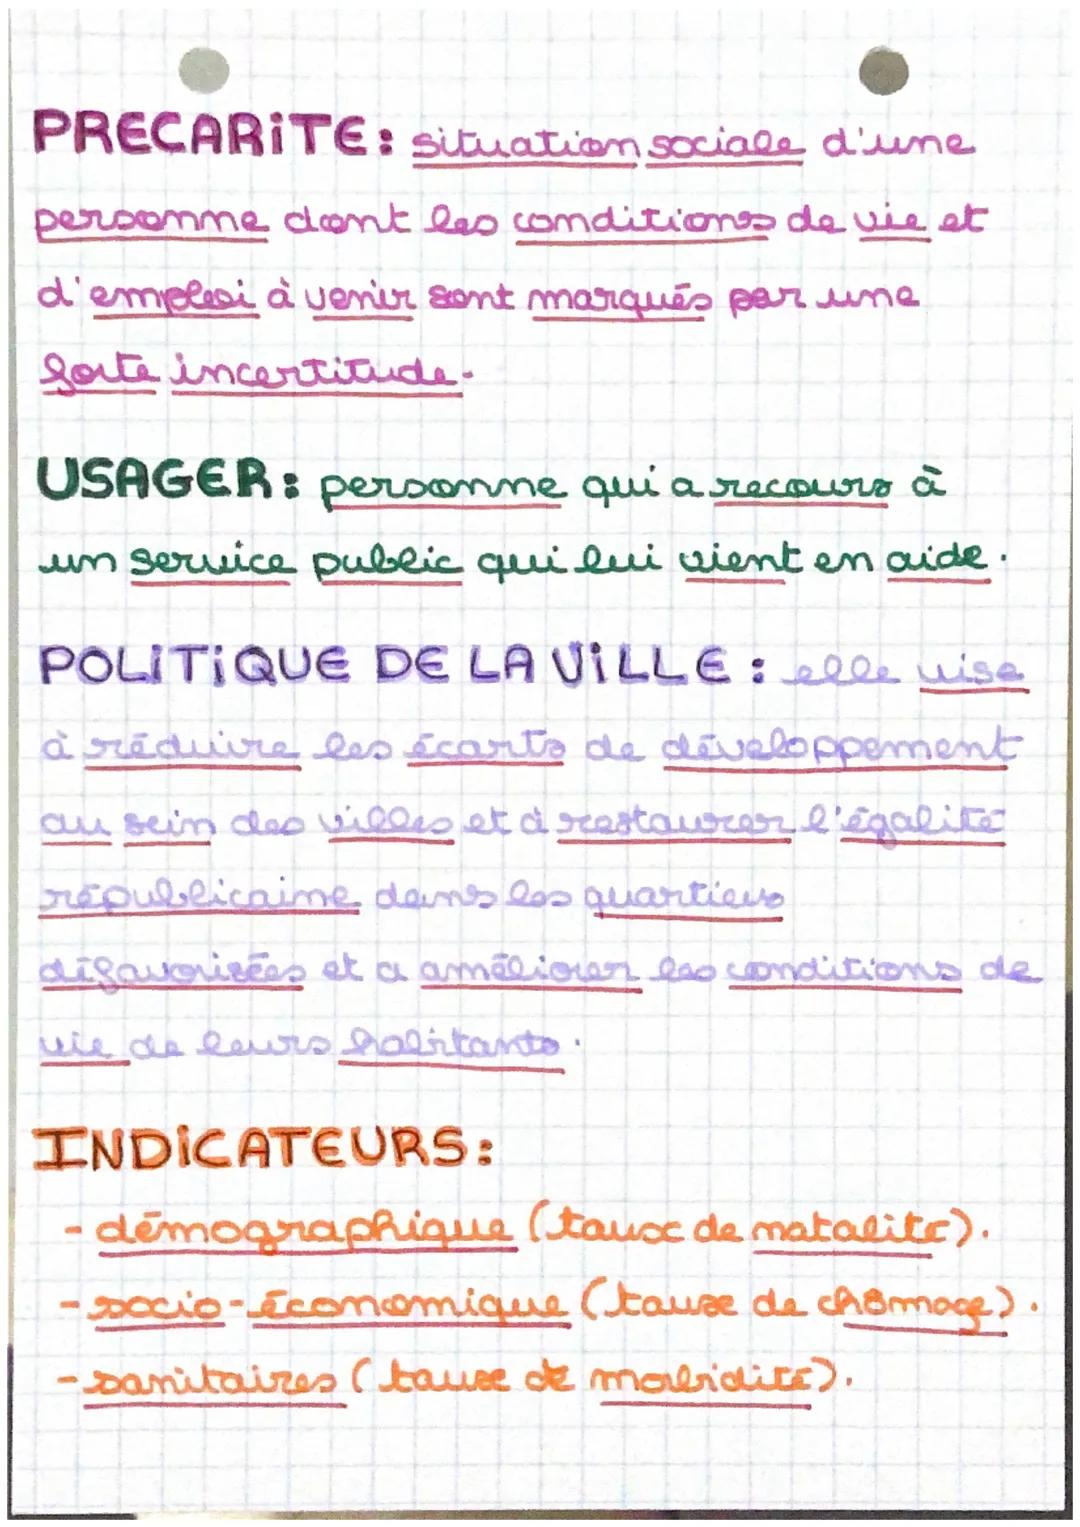 PRECARiTE: situation sociale d'une
personne dont les conditions de vie et
d'emploi à venir sont marqués par une
forte incertitude.
USAGER: personne qui a recours à
un service public qui lui vient en aide.
POLiTiQUE DE LA ViLLE : elle vise
à réduire les écarts de développement
au sein des villes et à restaurer l'égalité
républicaine dans les quartiers
défavorisées et a améliorer les conditions de
vie de leurs habitants.
INDiCATEURS:
- démographique (taux de natalité).
- socio-économique (taux de chômage).
- sanitaires (taux de morbidité).